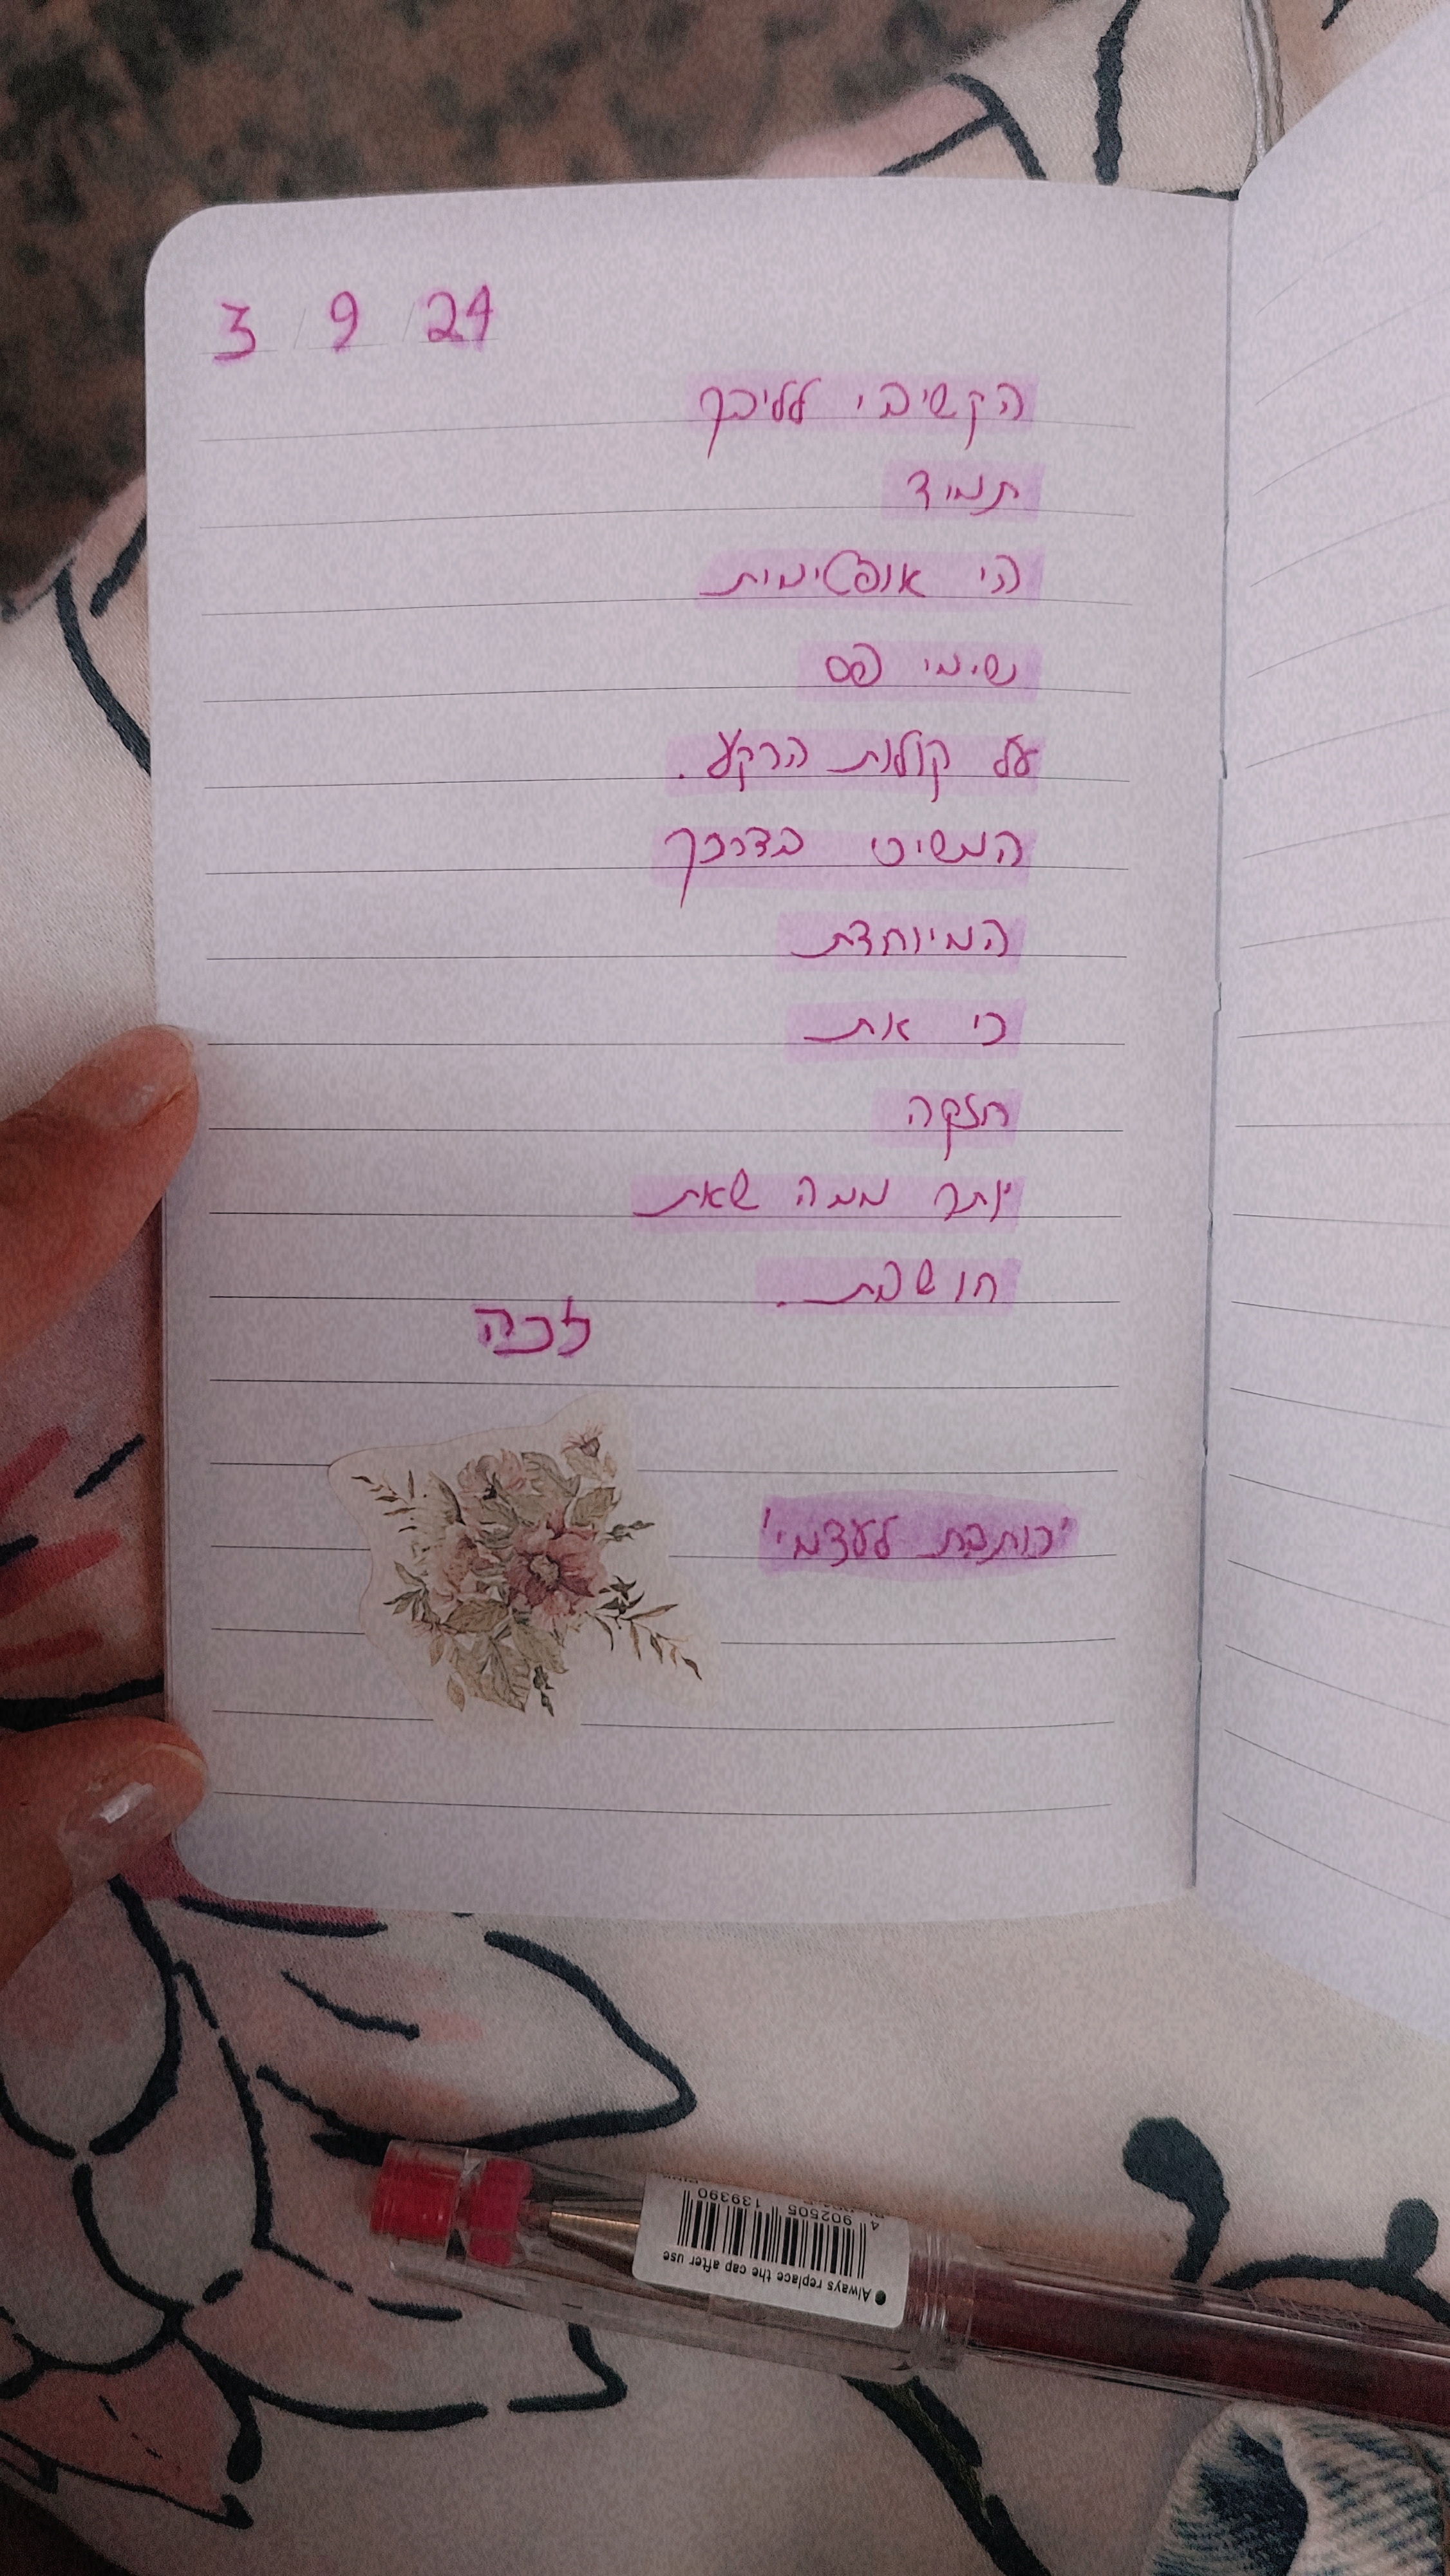 3 / 9 / 24
הקשיבי לליבך
תמיד
הי אופטימית
נשימי פס
על קולות הרקע.
המשיכי בדרכך
המיוחדת
כי את
חזקה
יותר ממה שאת
חושבת.
זכה
'כותבת לעצמי'
4 902505 139390
Always replace the cap after use